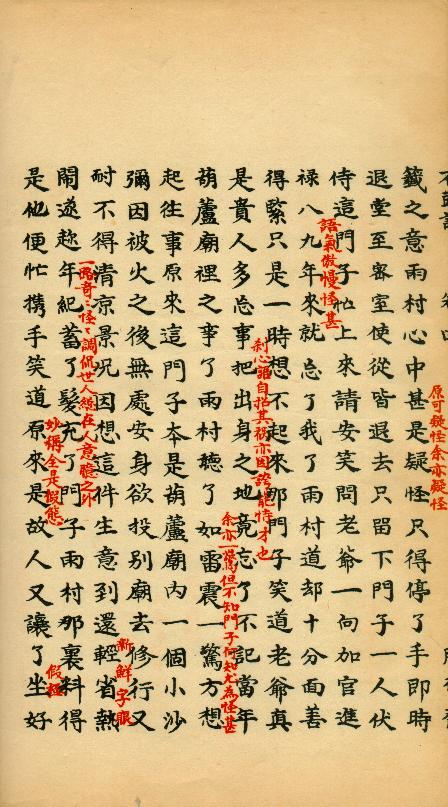 籤之意雨村心中甚是疑怪只得停了手即時
原可疑怪余亦疑怪
退堂至密室使從皆退去只留下門子一人伏
侍這門子忙上來請安笑問老爺一向加官進
祿八九年來就忘了我了雨村道却十分面善
語氣傲慢怪甚
得緊只是一時想不起來那門子笑道老爺真
是貴人多忘事把出身之地竟忘了不記當年
刹心語自招其禍亦因誇能恃才也
葫蘆廟裡之事了雨村聽了如雷震一驚方想
余亦一驚但不知門子何知尤為怪甚
起往事原來這門子本是葫蘆廟內一個小沙
彌因被火之後無處安身欲投別廟去修行又
耐不得清凉景况因想這件生意到還輕省熱
新鮮字眼
一路奇奇怪怪調侃世人總在人意臆之外
鬧遂趁年紀蓄了髮充了門子雨村那裏料得
妙稱全是假態
是他便忙攜手笑道原來是故人又讓了坐好
假極